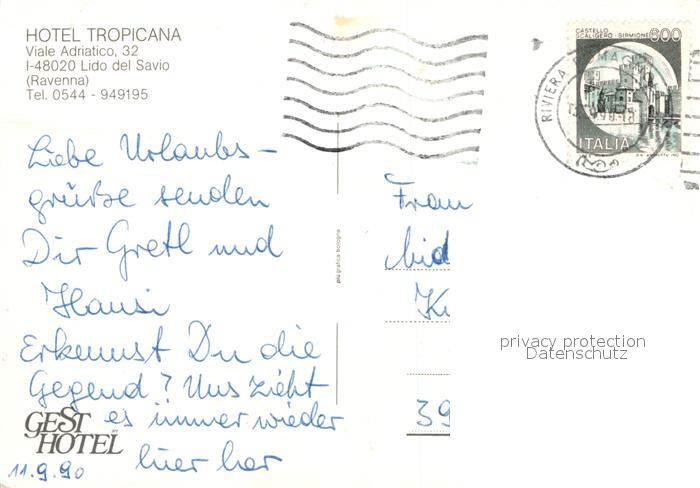 HOTEL TROPICANA
Viale Adriatico, 32
I-48020 Lido del Savio
(Ravenna)
Tel. 0544 - 949195
CASTELLO
SCALIGERO SIRMIONE 600
RIVIERA
ITALIA
Liebe Urlaubs-
grüße senden
Dir Gretl und
Hansi
Erkennst Du die
Gegend? Uns zieht
es immer wieder
hier her
GEST
HOTEL
11.9.90
più grafica bologna
Frau
39
privacy protection
Datenschutz